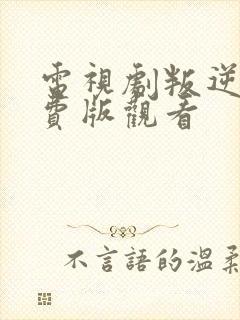 電視劇叛逆
費版觀看
不言語的溫柔